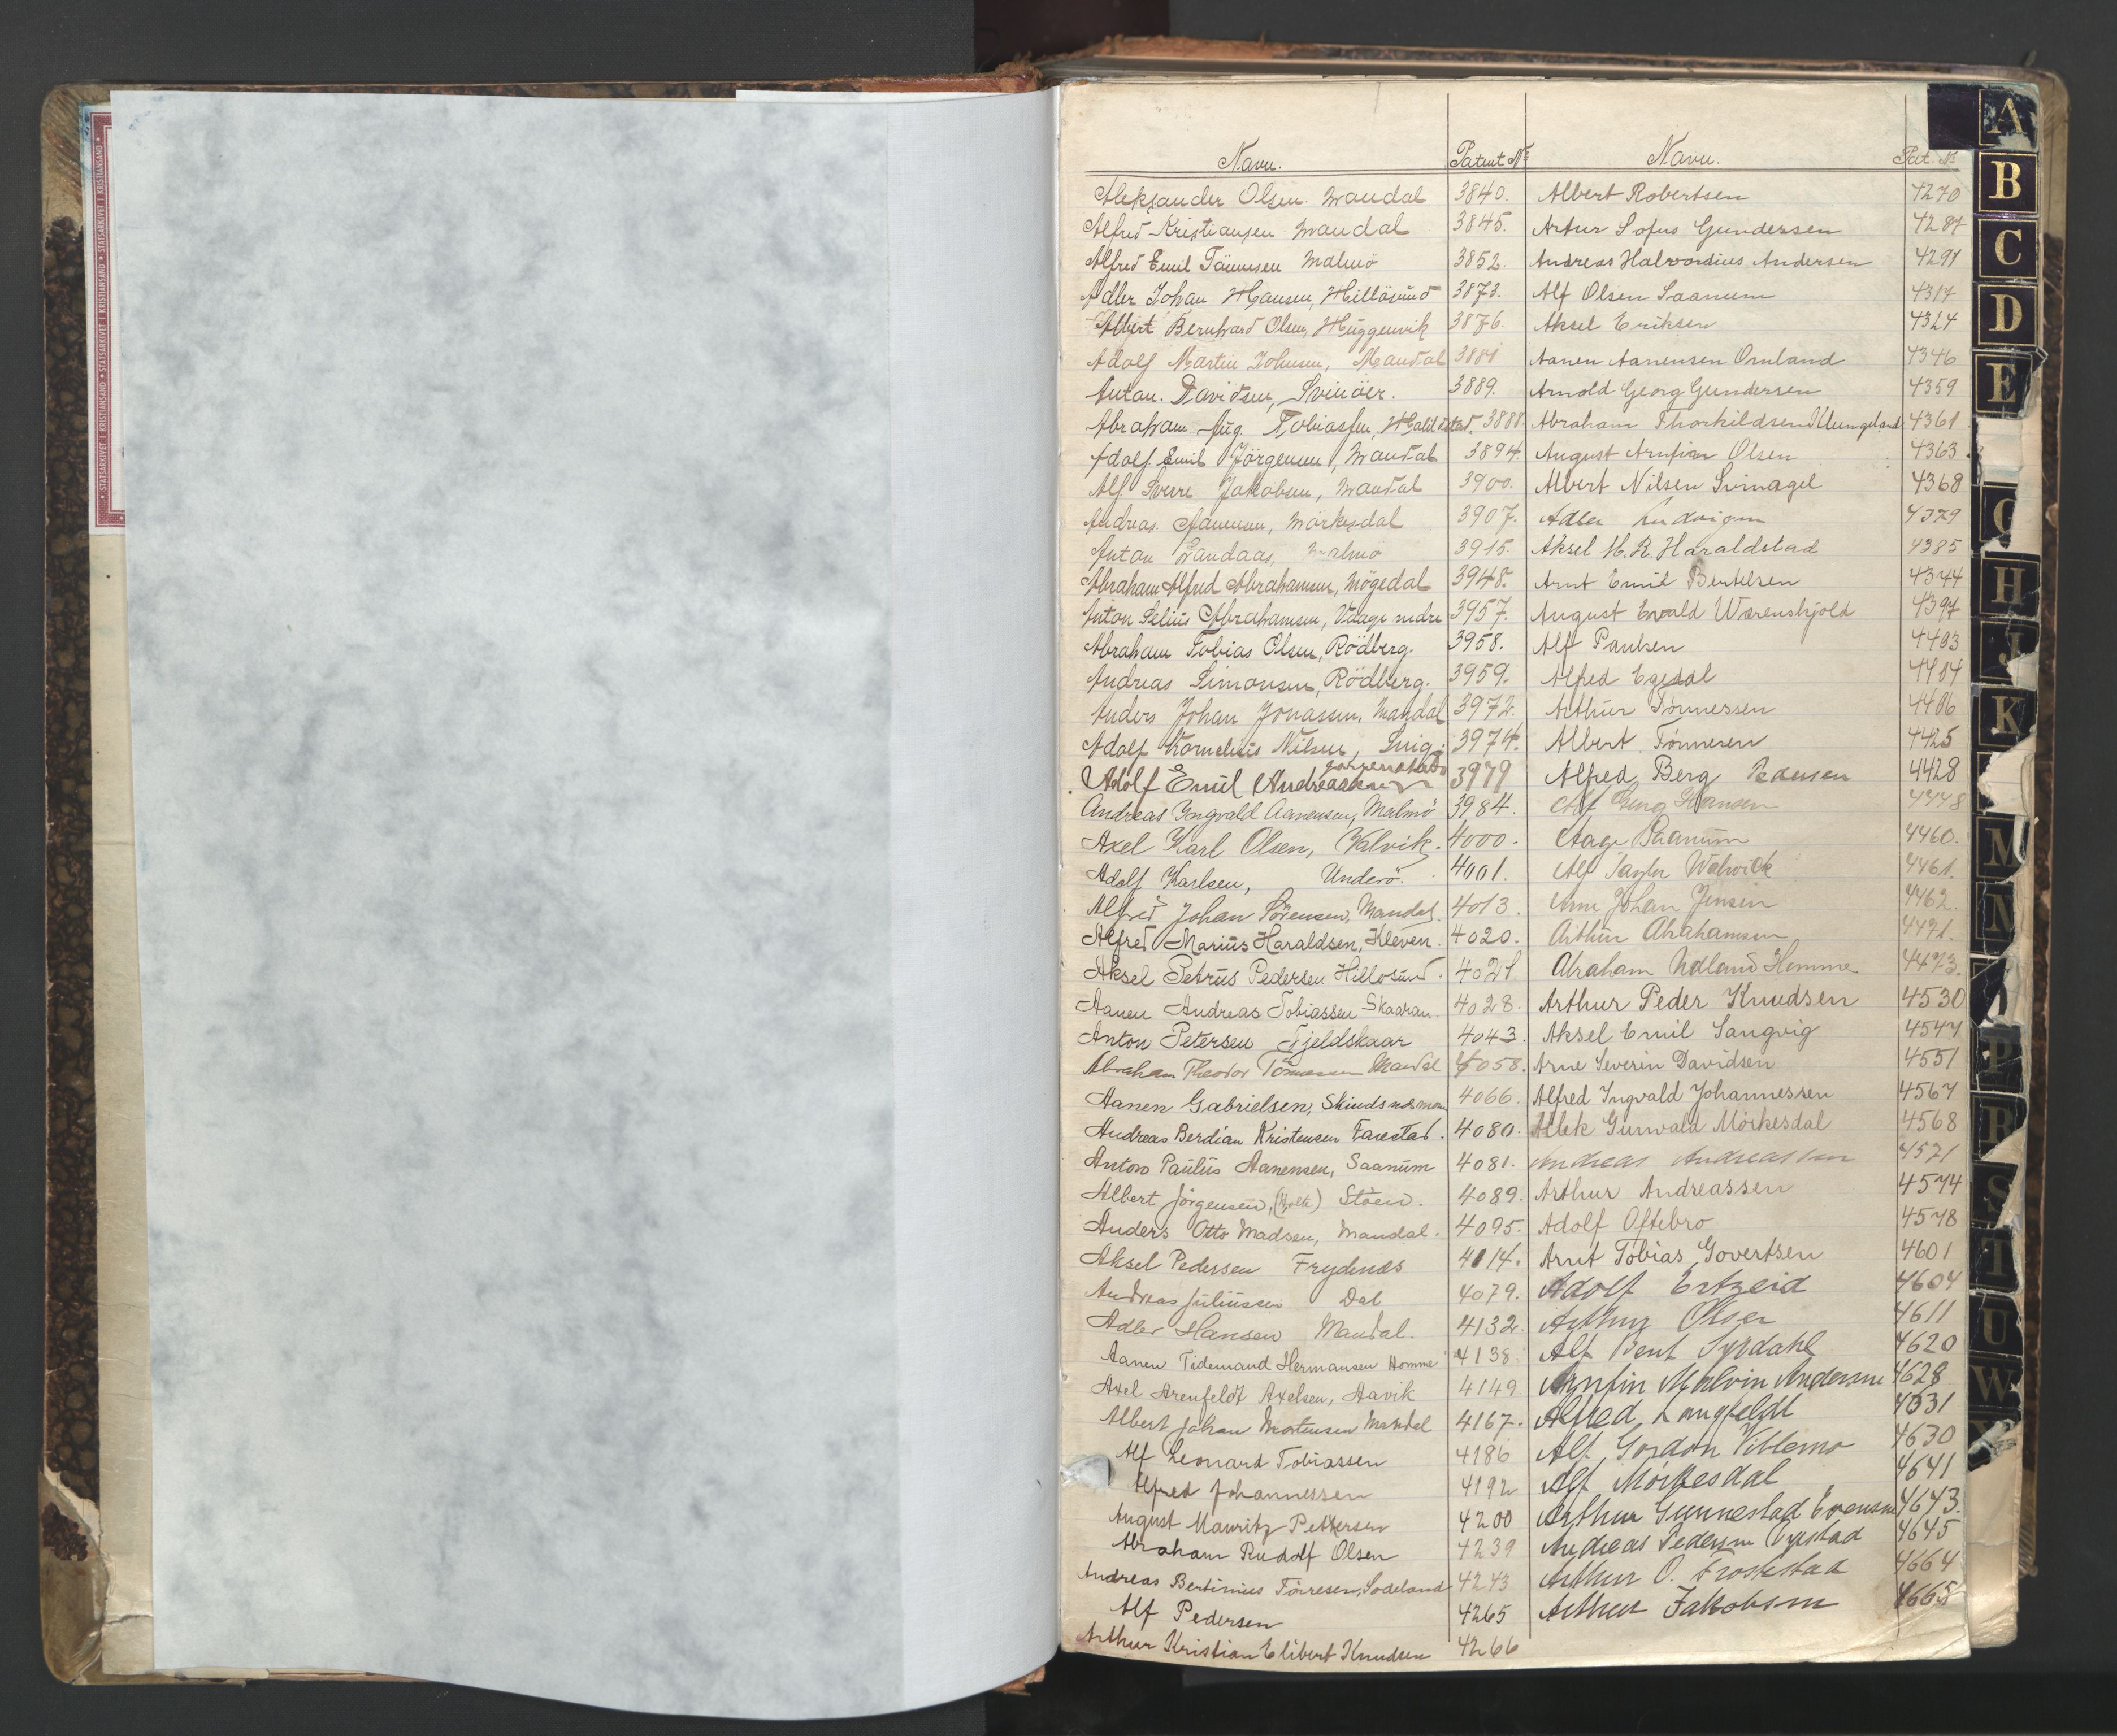 STATSARKIVET I KRISTIANSAND • STATSARKIVET I KRISTIANSAND • STATSARKIVET I KRISTIANSAND
Navn. Patent No
Aleksander Olsen. Mandal 3840.
Alfred Kristiansen Mandal 3845.
Alfred Emil Tönnesen Malmö 3852.
Adler Johan Hansen, Hillösund 3873.
Albert Bernhard Olsen, Huggenvik 3876.
Adolf Martin Johnsen, Mandal 3881
Anton. Davidsen, Svinöer. 3889.
Abraham Aug. Tobiassen, 3888
Adolf Emil Jörgensen, Mandal 3894.
Alf Sverre Jakobsen, Mandal 3900.
Andreas Aanensen, Mörkesdal 3907.
Anton Landaas, Malmö 3915.
Abraham Alfred Abrahamsen, Mögedal 3948.
Anton Selius Abrahamsen, Udage nedre 3957.
Abraham Tobias Olsen, Rödberg. 3958.
Andreas Simonsen, Rödberg. 3959.
Anders Johan Jonassen, Mandal 3972.
Adolf Kornelius Nilsen, Snig. 3974.
Adolf Emil Andreassen 3979
Andreas Yngvald Aanensen, Malmö 3984.
Axel Karl Olsen, Valvik. 4000.
Adolf Karlsen, Underö. 4001.
Alfred Johan Sörensen, Mandal. 4013.
Alfred Marius Haraldsen, Kleven. 4020.
Aksel Petrus Pedersen Hillosund. 4021.
Aanen Andreas Tobiassen Skaaran. 4028.
Anton Petersen Fjeldskaar 4043.
Abraham Theodor Tönnessen Mandal 4058.
Aanen Gabrielsen, 4066.
Andreas Berdian Kristensen Farestad. 4080.
Anton Paulus Aanensen, Saanum 4081.
Albert Jörgensen, (Holk) Stöen. 4089.
Anders Otto Madsen, Mandal. 4095.
Aksel Pedersen Frydenes 4114.
Andreas Juliussen Dal 4079.
Adler Hansen Mandal. 4132.
Aanen Tidemand Hermansen Homme 4138.
Axel Arenfeldt Axelsen, Aavik 4149
Albert Johan Mortensen Mandal 4167.
Alf Leonard Tobiassen 4186
Alfred Johannessen 4192
August Mauritz Pettersen 4200
Abraham Rudolf Olsen 4239
Andreas Bertinius Törresen, Sodeland 4243
Alf Pedersen 4265
Arthur Kristian Elibert Knudsen 4266
Navn. Pat. No
Albert Robertsen 4270
Artur Sofus Gundersen 4287
Andreas Halvordius Andersen 4291
Alf Olsen Saanum 4317
Aksel Eriksen 4324
Aanen Aanensen Omland 4346
Arnold Georg Gundersen 4359
Abraham Thorkildsen Ulleungeland 4361
August Arnfinn Olsen 4363.
Albert Nilsen Svinagel 4368
Adler Ludvigsen 4379
Aksel H. R. Haraldstad 4385
Arnt Emil Bertelsen 4344
August Evald Wærenskjold 4397
Alf Paulsen 4403
Alfred Egedal 4404
Arthur Tönnessen 4406
Albert Tönnesen 4425
Alfred Berg Pedersen 4428
Alf Georg Hansen 4448
Aage Saanum 4460.
Alf Taylor Walvick 4461.
Arne Johan Jensen 4462.
Arthur Abrahamsen 4471.
Abraham Udland Homme 4473.
Arthur Peder Knudsen 4530
Aksel Emil Sangvig 4547
Arne Severin Davidsen 4551
Alfred Ingvald Johannessen 4567
Alek Gunvald Mörkesdal 4568
Andreas Andreassen 4571
Arthur Andreassen 4574
Adolf Oftebro 4578
Arnt Tobias Govertsen 4601
Adolf Ertzeid 4604
Arthur Olsen 4611
Alf Bent Syrdahl 4620
Arnfin Malvin Andersen 4628
Alfred Langfeldt 4631
Alf Gordon Villemo 4630
Alf Mörkesdal 4641
Arthur Gunnestad Evensen 4643.
Andreas Pedersen 4645
Arthur O. Frostestad 4664
Arthur Jakobsen 4665
A
B
C
D
E
G
H
J
K
M
N
O
P
R
S
T
U
W